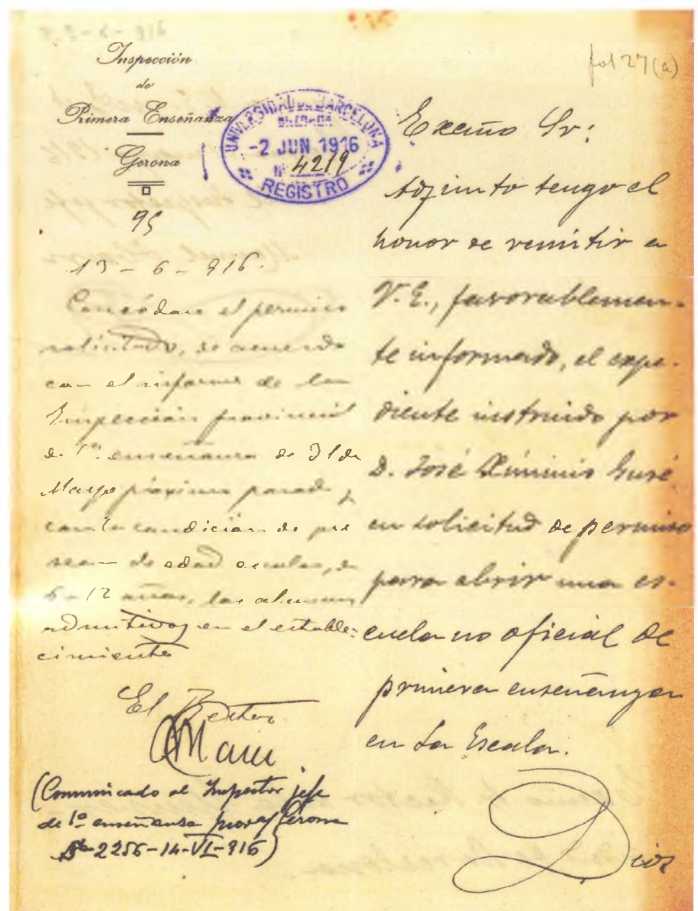 Inspección
de
Primera Enseñanza
Gerona
95
fol 27(a)
UNIVERSIDAD DE BARCELONA
-2 JUN 1916
Nº 4219
REGISTRO
13-6-916.
Concédase el permiso
solicitado, de acuerdo
con el informe de la
Inspección provincial
de 1ª enseñanza de 31 de
Mayo próximo pasado y
con la condición de que
sean de edad escolar, de
6-12 años, los alumnos
admitidos en el estable-
cimiento
El Rector
(Comunicado al Inspector jefe
de 1ª enseñanza prov. Gerona
2256-14-VI-916)
Excmo Sr:
Adjunto tengo el
honor de remitir a
V. E., favorablemen-
te informado, el expe-
diente instruido por
D. José Ximinis Susé
en solicitud de permiso
para abrir una es-
cuela no oficial de
primera enseñanza
en La Escala.
Dios